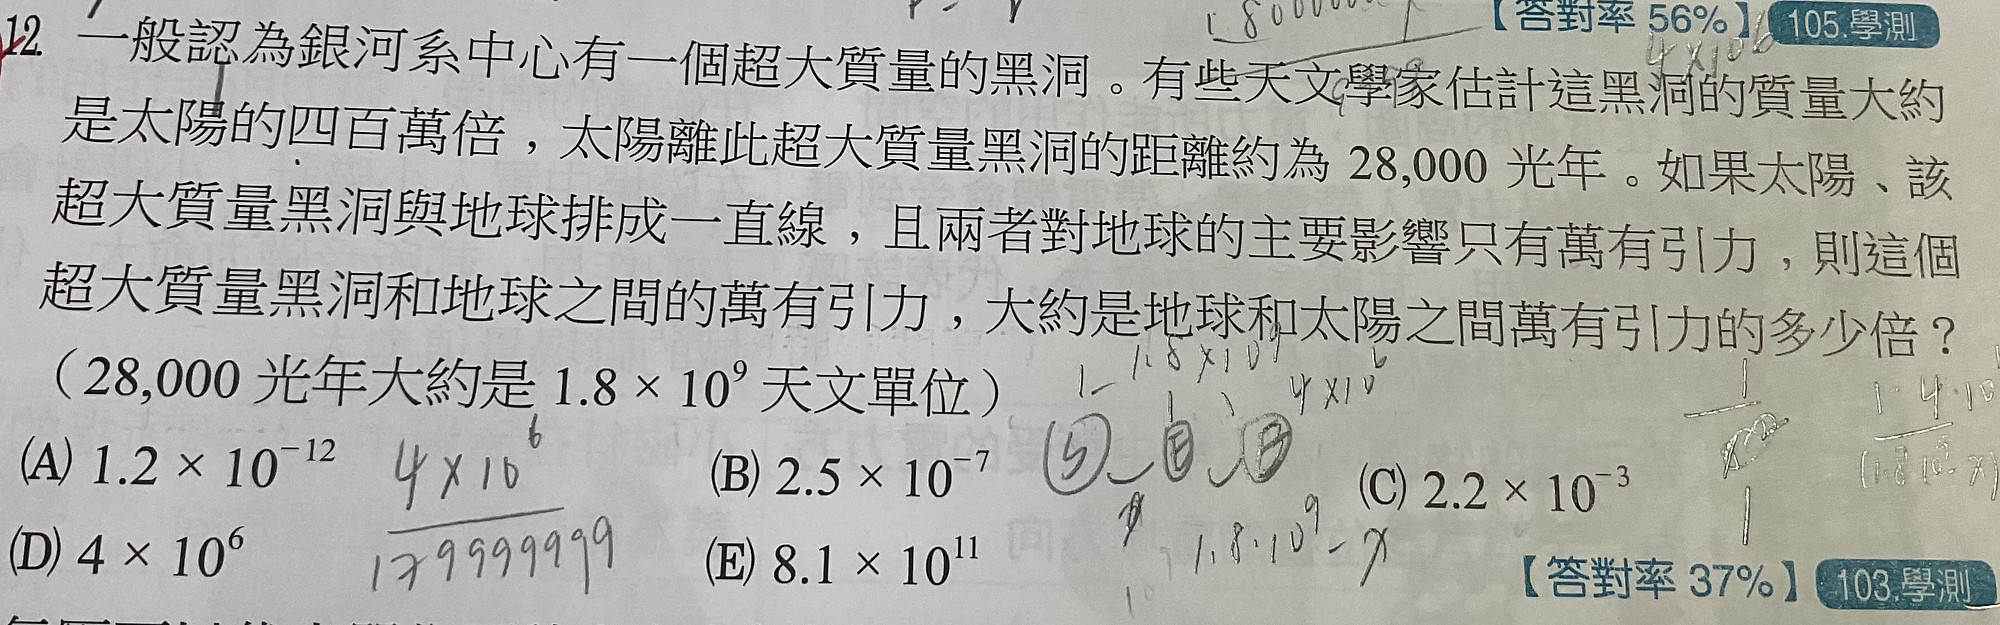 【答對率 56%】 105.學測
12 一般認為銀河系中心有一個超大質量的黑洞。有些天文學家估計這黑洞的質量大約
是太陽的四百萬倍，太陽離此超大質量黑洞的距離約為 28,000 光年。如果太陽、該
超大質量黑洞與地球排成一直線，且兩者對地球的主要影響只有萬有引力，則這個
超大質量黑洞和地球之間的萬有引力，大約是地球和太陽之間萬有引力的多少倍？
（28,000 光年大約是 1.8 × 10⁹ 天文單位）
1.8×10⁹
4×10⁶
(A) 1.2 × 10⁻¹² (B) 2.5 × 10⁻⁷ (C) 2.2 × 10⁻³
4×10⁶
1799999999
S E B
1.8·10⁹-x
(D) 4 × 10⁶ (E) 8.1 × 10¹¹
【答對率 37%】 103.學測